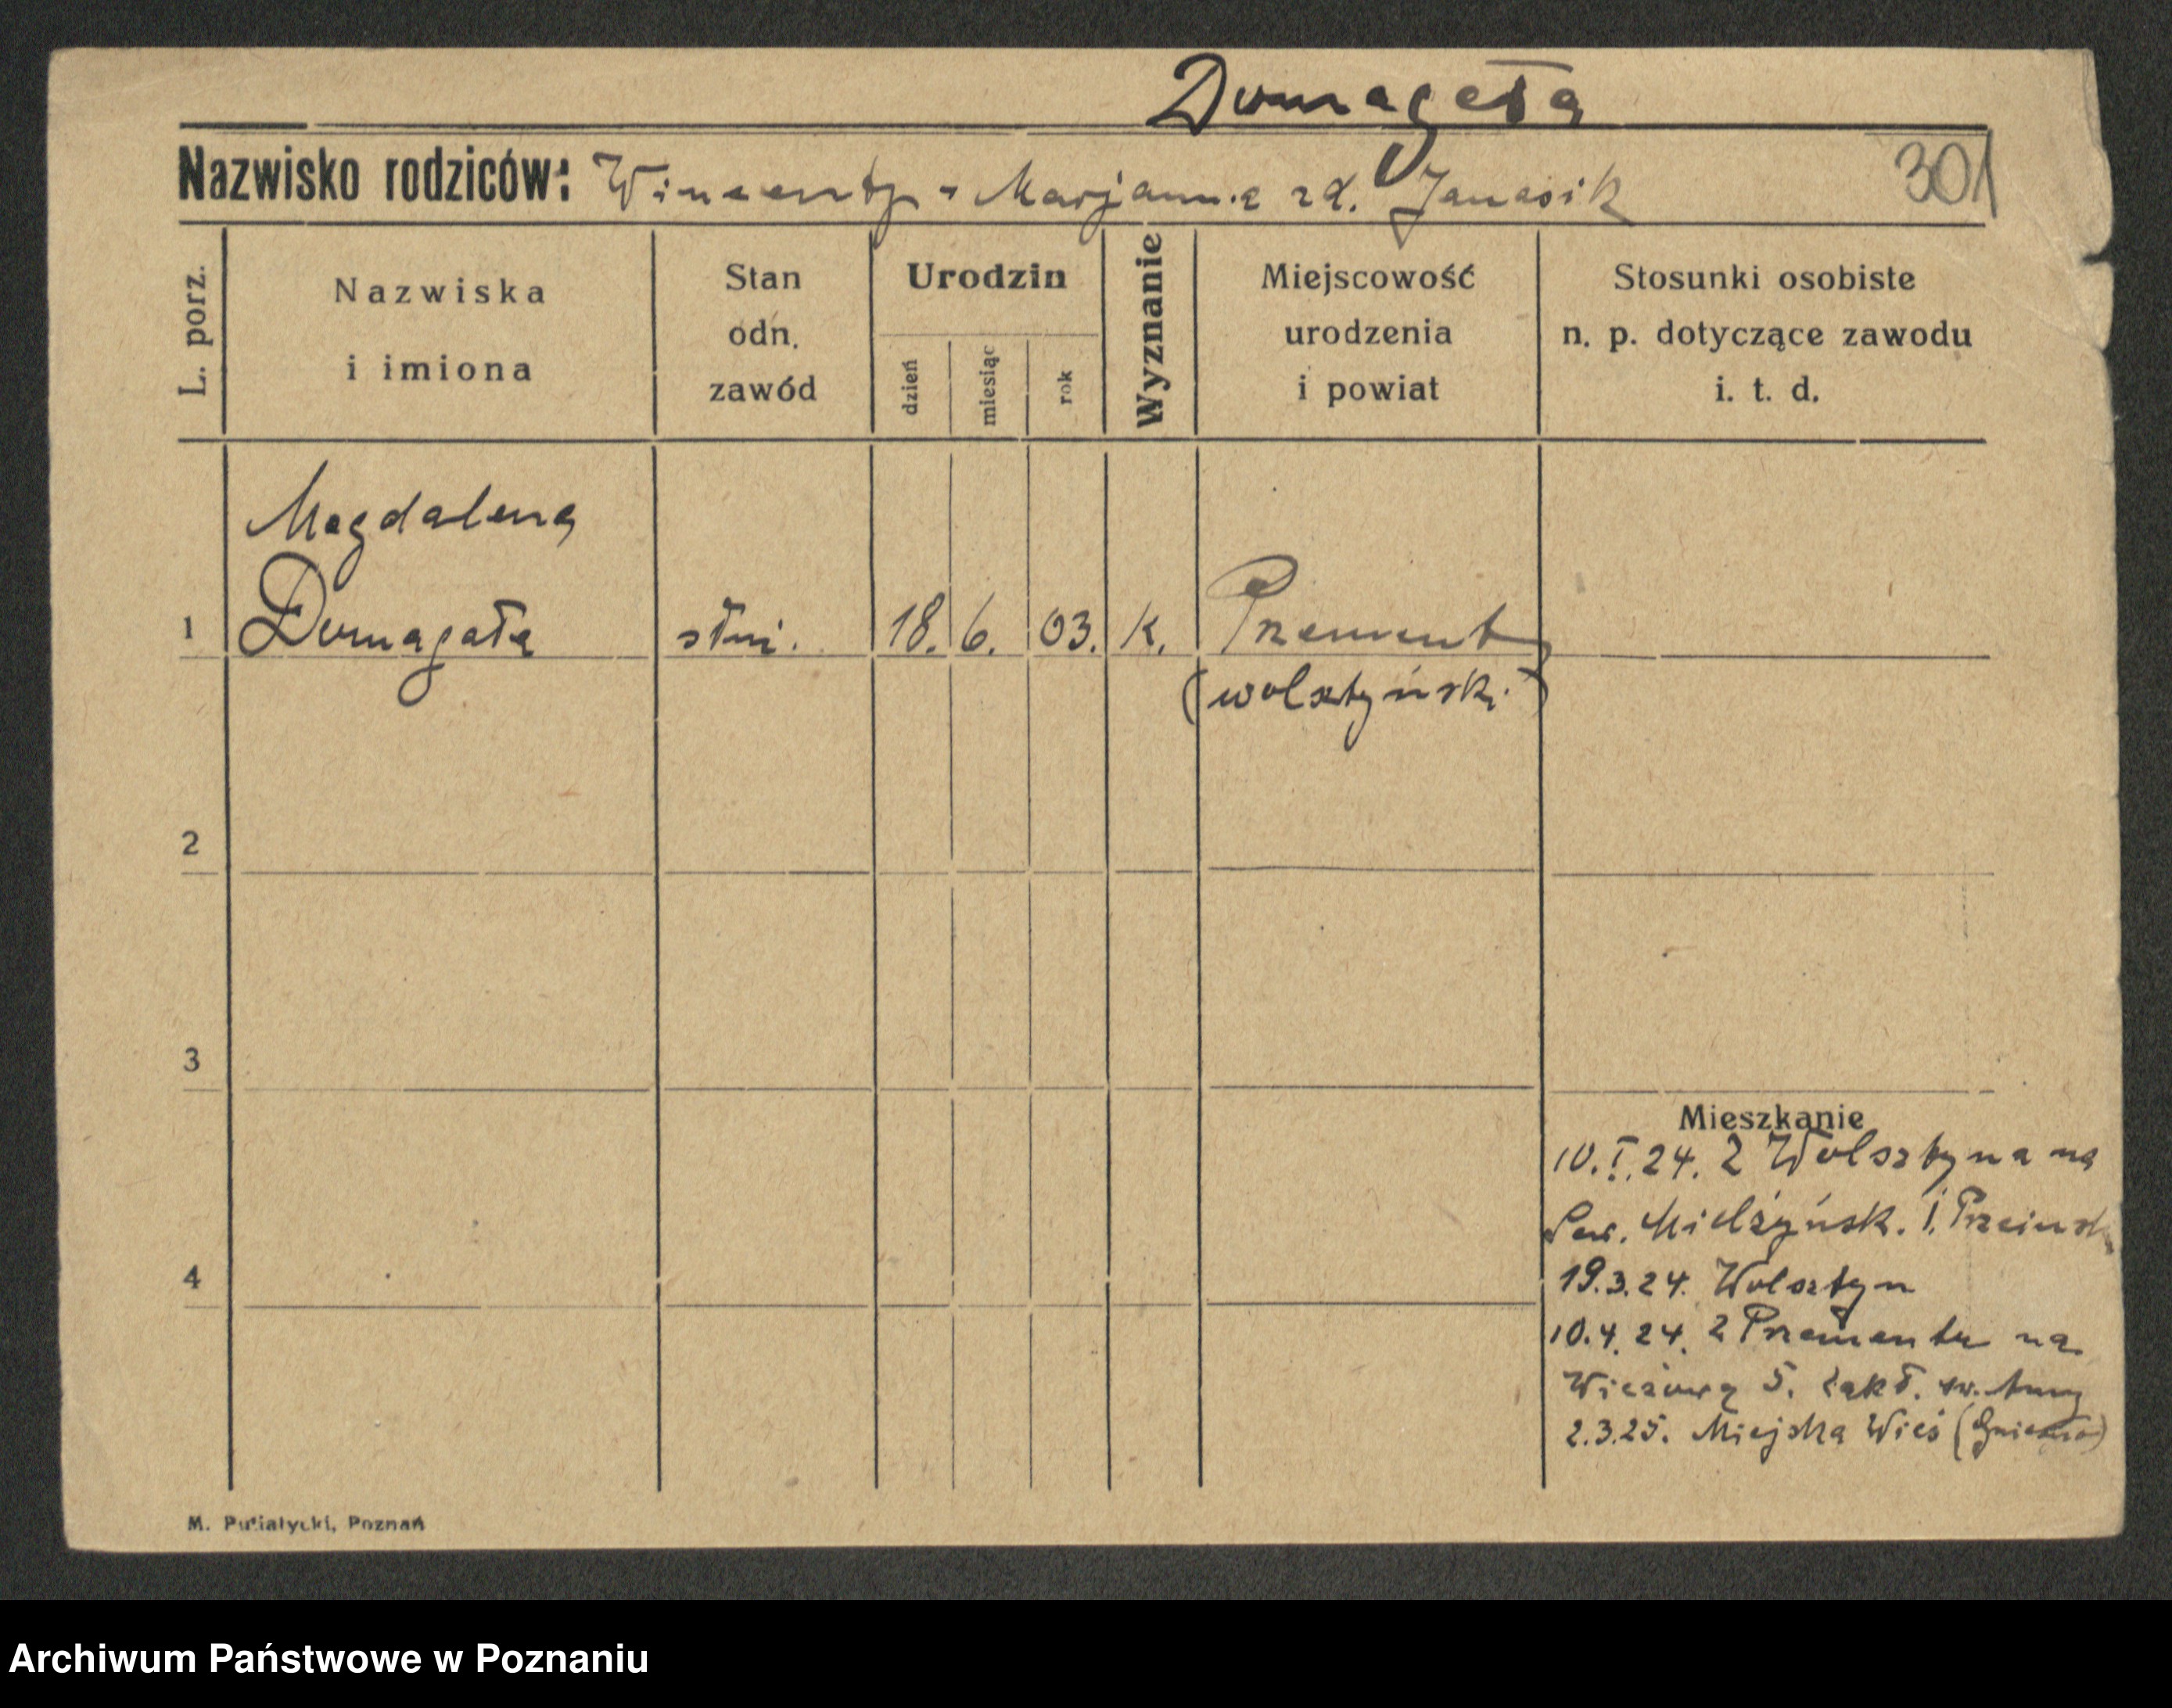 Domagała
Nazwisko rodziców: Wincenty - Marjanna zd. Janasik
301
L. porz.
Nazwiska
i imiona
Stan
odn.
zawód
Urodzin
dzień
miesiąc
rok
Wyznanie
Miejscowość
urodzenia
i powiat
Stosunki osobiste
n. p. dotyczące zawodu
i. t. d.
Magdalena
1 Domagała służ. 18. 6. 03. K. Przement
(wolsztyński)
2
3
4
Mieszkanie
10.I.24. z Wolsztyna na
Sew. Mielżyńsk. 1.
19.3.24. Wolsztyn
10.4.24. z Przementu na
Wieżową 5. zakł. św. Anny
2.3.25. Miejska Wieś (Gniezno)
M. Putiatycki, Poznań
Archiwum Państwowe w Poznaniu